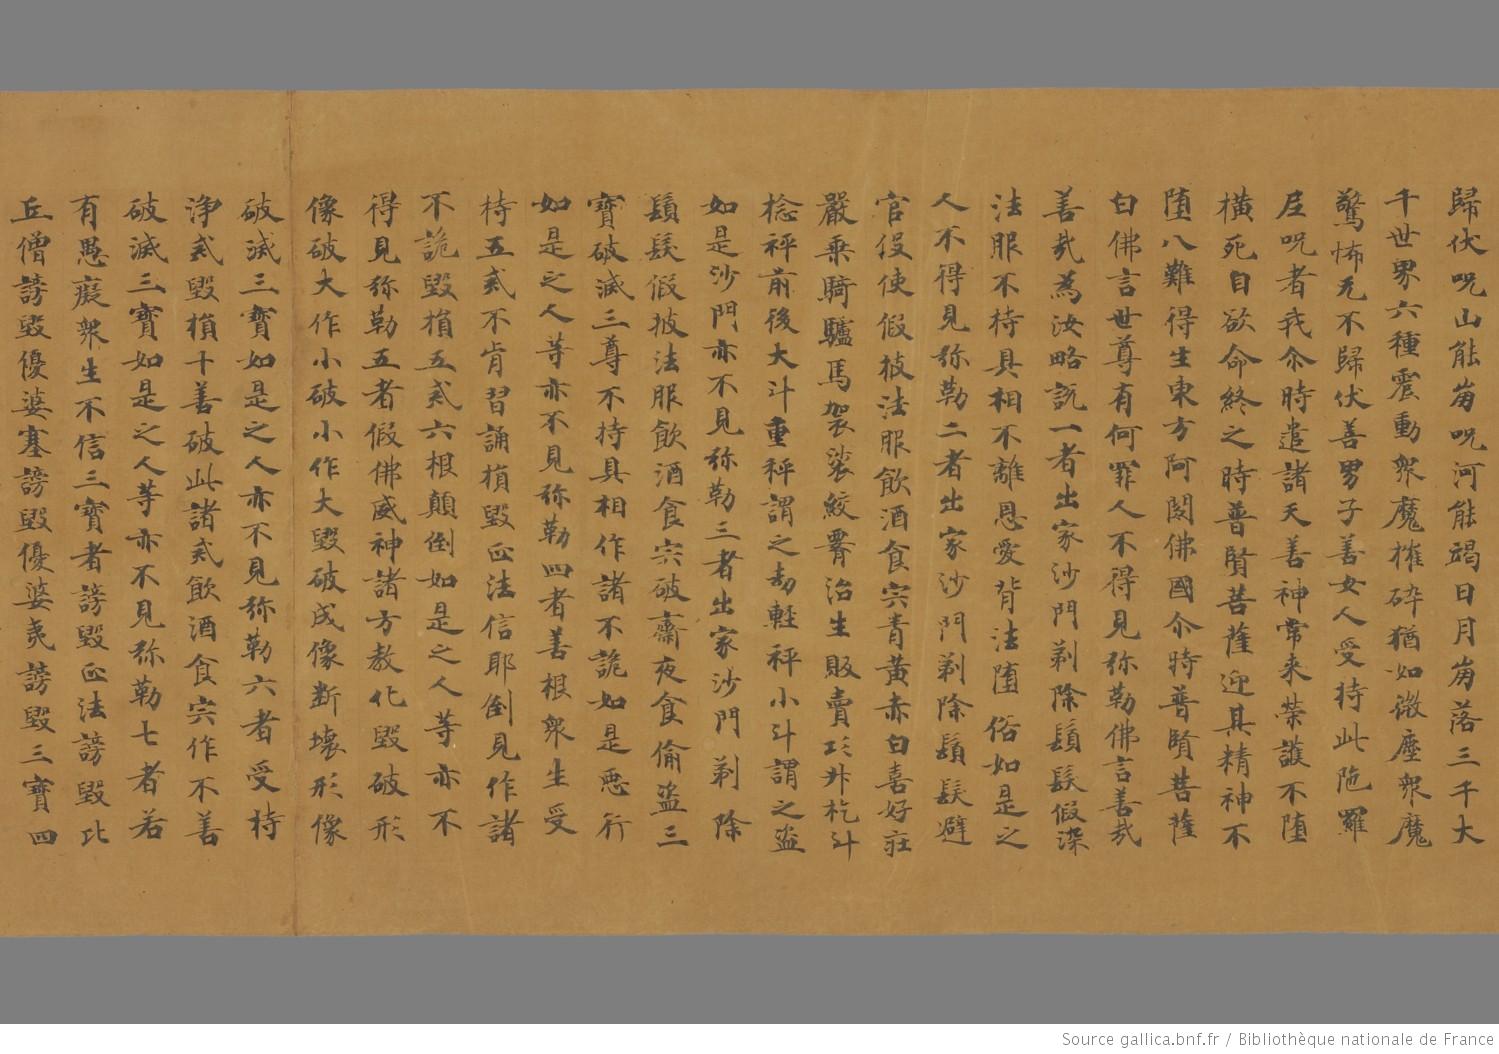 歸伏呪山能崩呪河能竭日月崩落三千大
千世界六種震動衆魔摧碎猶如微塵衆魔
驚怖无不歸伏善男子善女人受持此陁羅
尼呪者我尒時遣諸天善神常来榮護不堕
橫死自欲命終之時普賢菩薩迎其精神不
堕八難得生東方阿閦佛國尒時普賢菩薩
白佛言世尊有何罪人不得見弥勒佛言善哉
善哉為汝略説一者出家沙門剃除鬚髮假染
法服不持具相不離恩愛背法堕俗如是之
人不得見弥勒二者出家沙門剃除鬚髮避
官伇使假被法服飲酒食宍青黃赤白喜好莊
嚴乗騎驢馬袈裟絞罥治生販賣巧升杚斗
捻秤前後大斗重秤謂之劫軽秤小斗謂之盜
如是沙門亦不見弥勒三者出家沙門剃除
鬚髮假披法服飲酒食宍破齋夜食偷盜三
寶破滅三尊不持具相作諸不詭如是惡行
如是之人等亦不見弥勒四者善根衆生受
持五戒不肯習誦損毀正法信耶倒見作諸
不詭毀損五戒六根顛倒如是之人等亦不
得見弥勒五者假佛威神諸方教化毀破形
像破大作小破小作大毀破成像断壞形像
破滅三寶如是之人亦不見弥勒六者受持
浄戒毀損十善破此諸戒飲酒食宍作不善
破滅三寶如是之人等亦不見弥勒七者若
有愚癡衆生不信三寶者謗毀正法謗毀比
丘僧謗毀優婆塞謗毀優婆夷謗毀三寶四
Source gallica.bnf.fr / Bibliothèque nationale de France